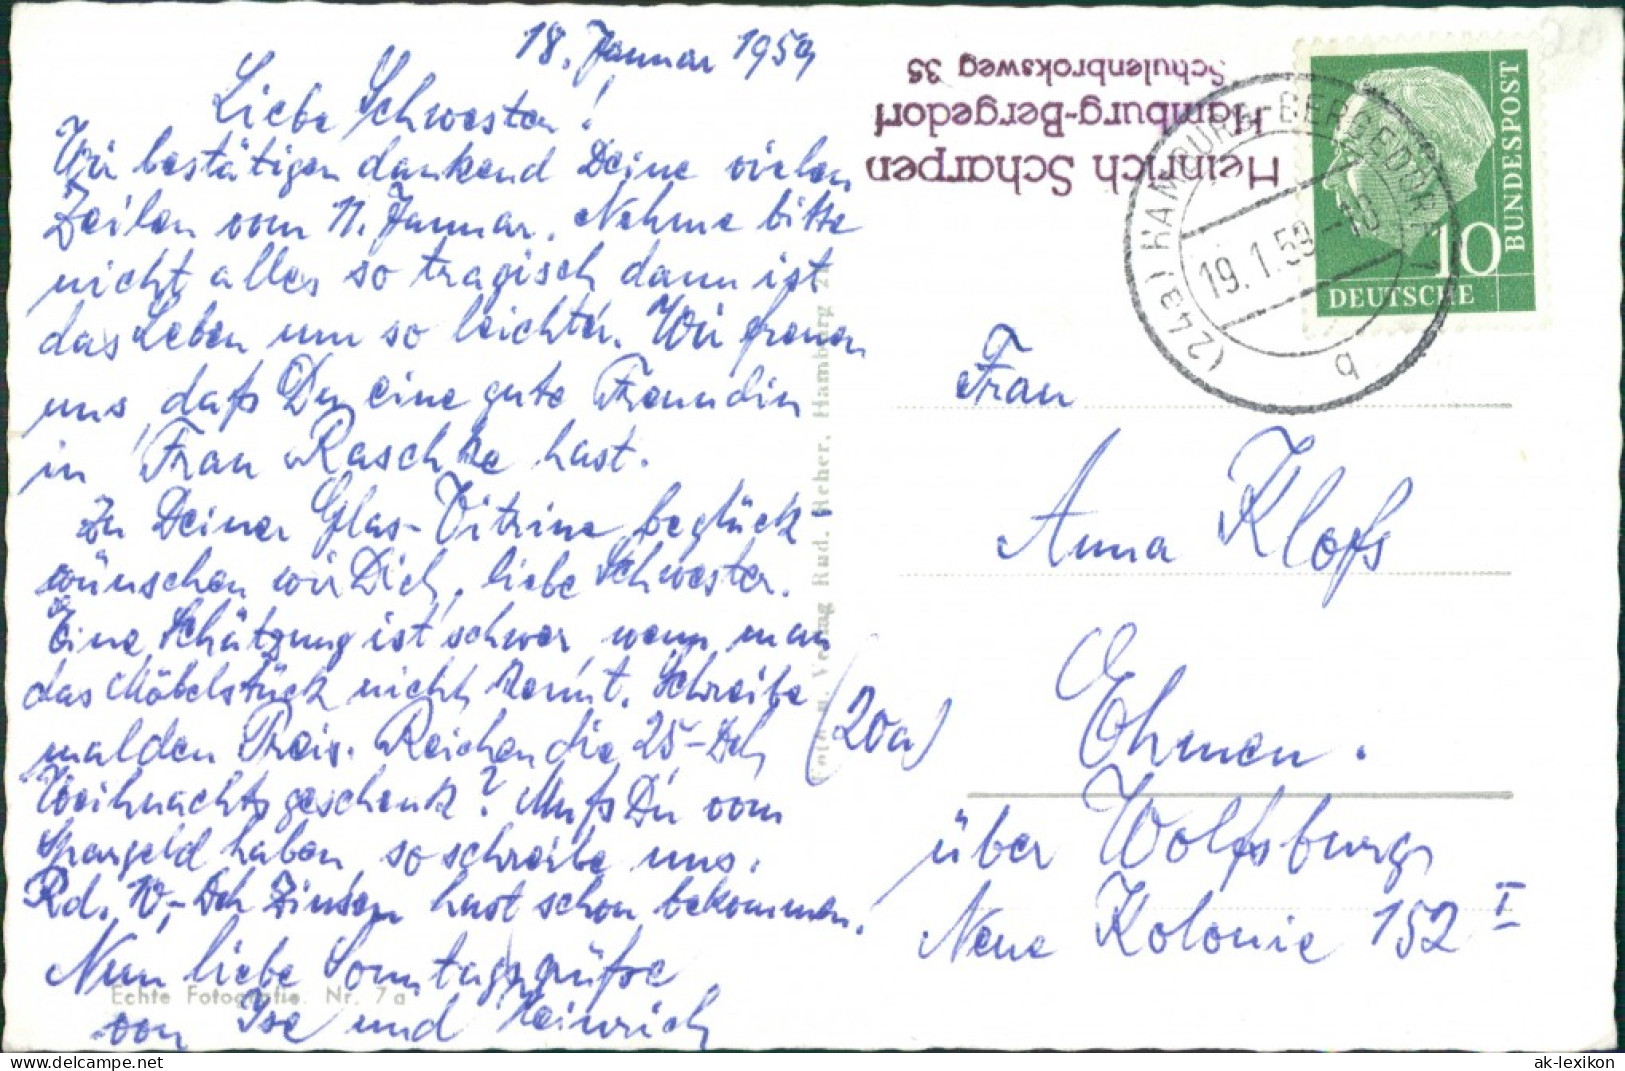 18. Januar 1959
Liebe Schwester!
Wir bestätigen dankend Deine vielen
Zeilen vom 11. Januar. Nehme bitte
nicht alles so tragisch dann ist
das Leben um so leichter. Wir freuen
uns, daß Du eine gute Freundin
in Frau Raschke hast.
Zu Deiner Glas-Vitrine beglück
wünschen wir Dich, liebe Schwester.
Eine Schätzung ist schwer, wenn man
das Möbelstück nicht kennt. Schreibe
mal den Preis. Reichen die 25,- DM
Weihnachtsgeschenk? Mußt Du vom
Spargeld haben, so schreibe uns.
Rd. 10,- DM Zinsen hast schon bekommen.
Nun liebe Sonntagsgrüße
von Ise und Heinrich
Echte Fotografie. Nr. 7a
Foto u. Verlag Rud. Reher, Hamburg
Heinrich Scharpen
Hamburg-Bergedorf
Schulenbroksweg 35
(24a) HAMBURG-BERGEDORF 1
19.1.59-10
b
DEUTSCHE
BUNDESPOST
10
20
Frau
Anna Klofs
(20a) Ehmen.
über Wolfsburg
Neue Kolonie 152 I
www.ansichtskartenversand.com
ak-lexikon